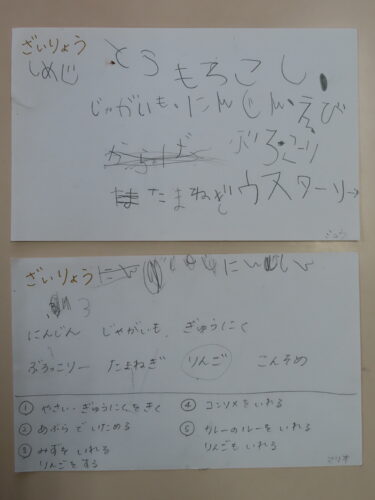 ざいりょう
しめじ とうもろこし
じゃがいも にんじん えび
ぶろっこり
たまねぎ ウスターソー
ざいりょう
にんじん じゃがいも ぎゅうにく
ぶろっこりー たまねぎ りんご こんそめ
① やさい・ぎゅうにくをきく
② あぶらでいためる
③ みずをいれる
りんごをする
④ コンソメをいれる
⑤ カレーのルーをいれる
りんごもいれる